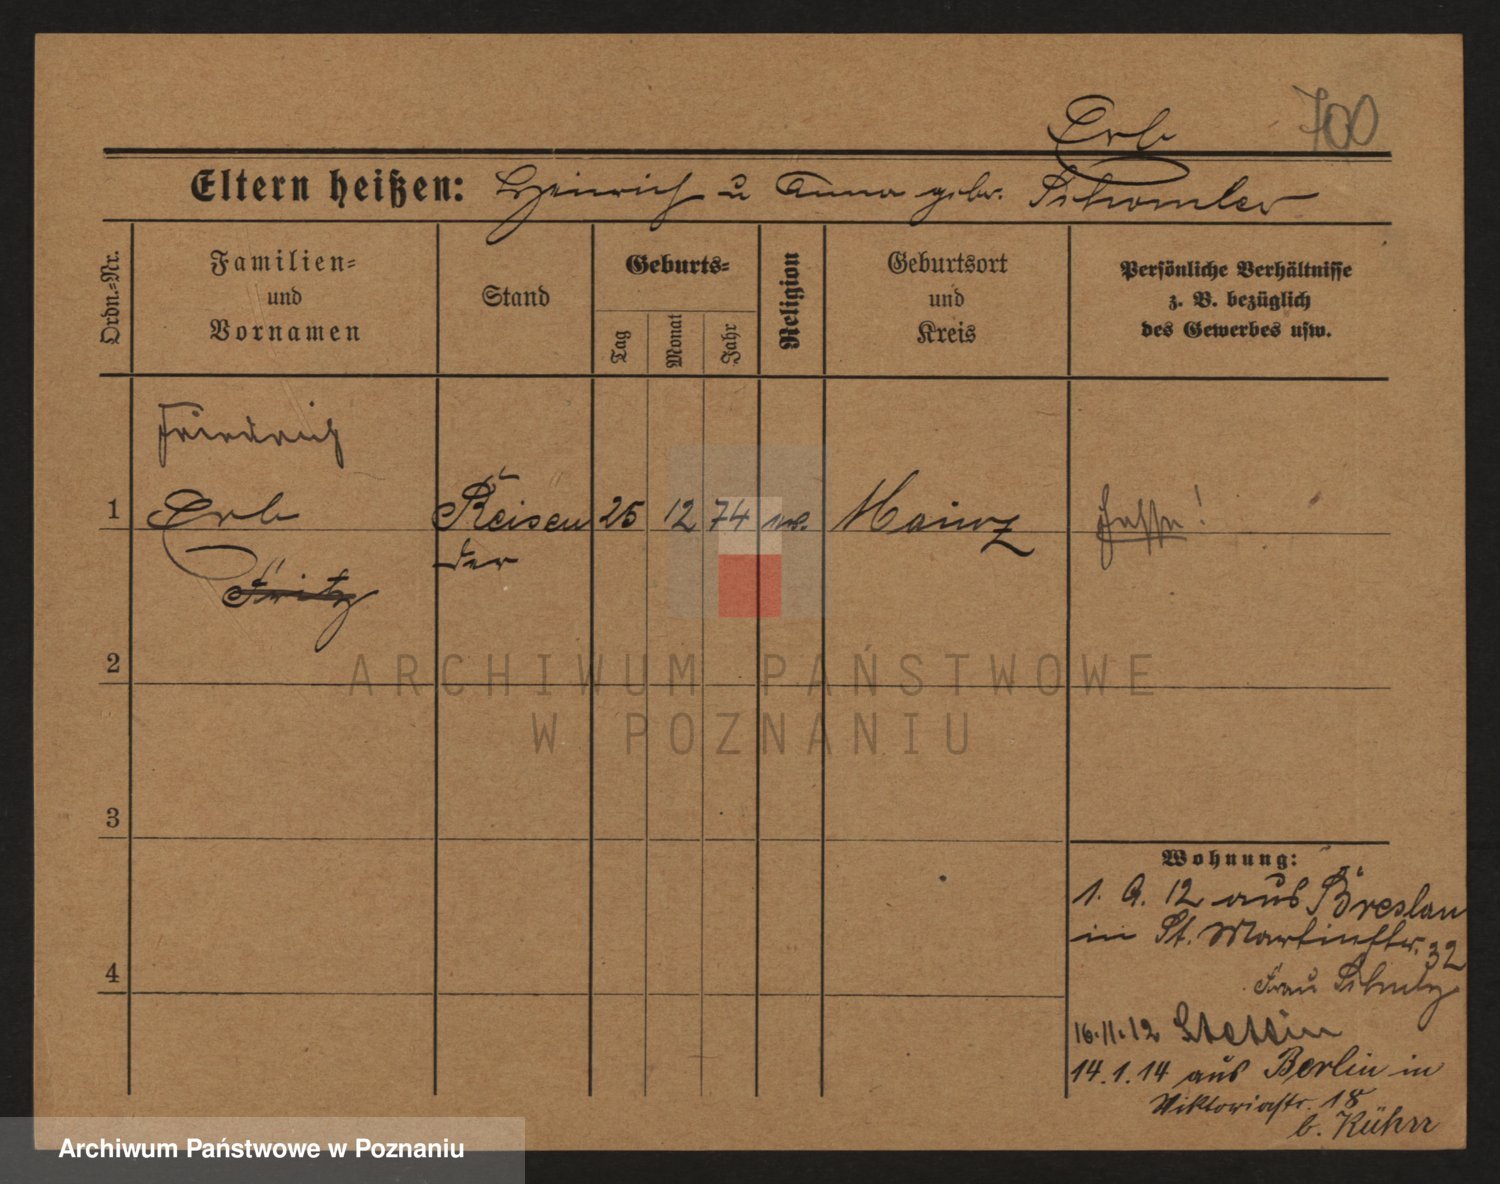 Erb 700
Eltern heißen: Heinrich u Anna gebr. Schomler
Ordn.=Nr.
Familien=
und
Vornamen
Stand
Geburts=
Tag
Monat
Jahr
Religion
Geburtsort
und
Kreis
Persönliche Verhältnisse
z. B. bezüglich
des Gewerbes usw.
Friedrich
1 Erb Reisen 25 12 74 Mainz
der
Fritz
2
3
4
Wohnung:
1. 9. 12 aus Breslau
in St. Martinstr. 32
Frau Schulz
16.11.12 Stettin
14.1.14 aus Berlin in
Viktoriastr. 18
b. Kührr
ARCHIWUM PAŃSTWOWE
W POZNANIU
Archiwum Państwowe w Poznaniu